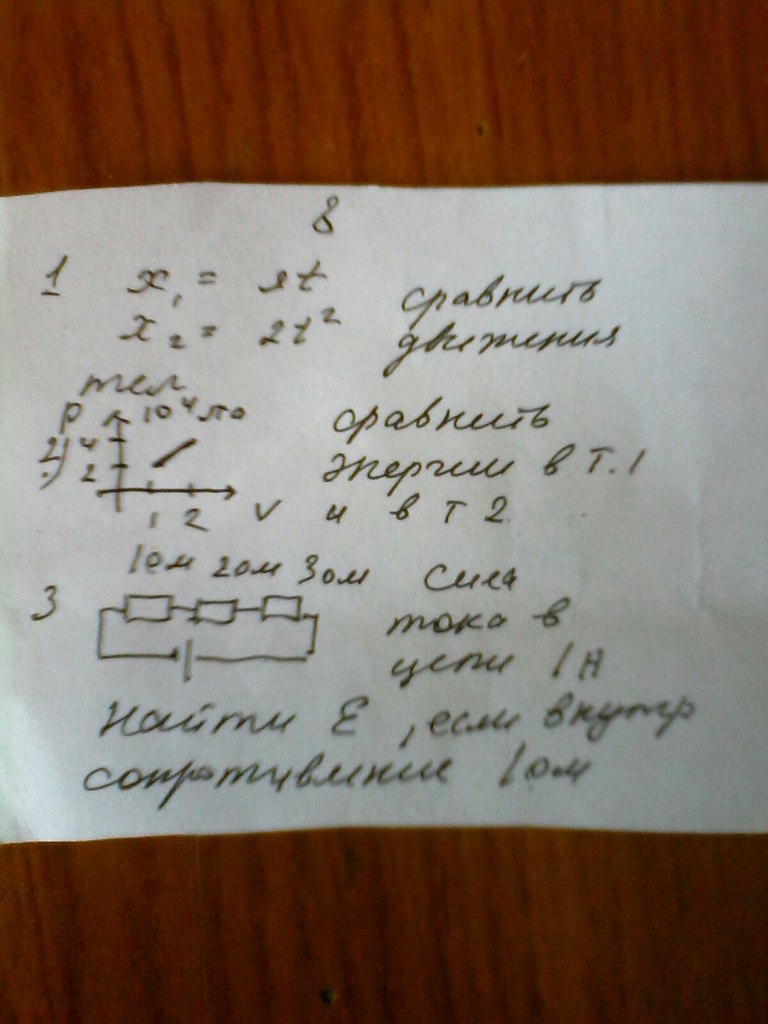 8
1 x₁ = 2t сравнить
x₂ = 2t² движения
тел
P 10⁴ па сравнить
2) 4 энергии в т. 1
2 и в т 2
1 2 V
1ом 2ом 3ом Сила
3 тока в
цепи 1А
Найти Ɛ, если внутр
сопротивление 1ом